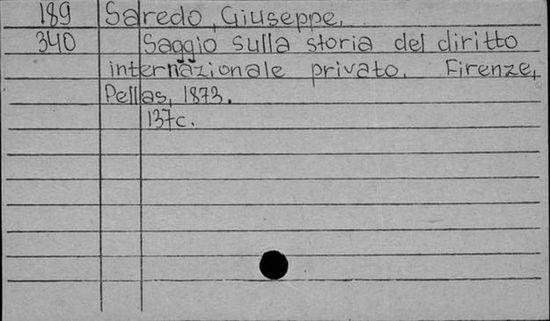 189 Saredo, Giuseppe.
340 Saggio sulla storia del diritto
internazionale privato. Firenze,
Pellas, 1873.
137c.